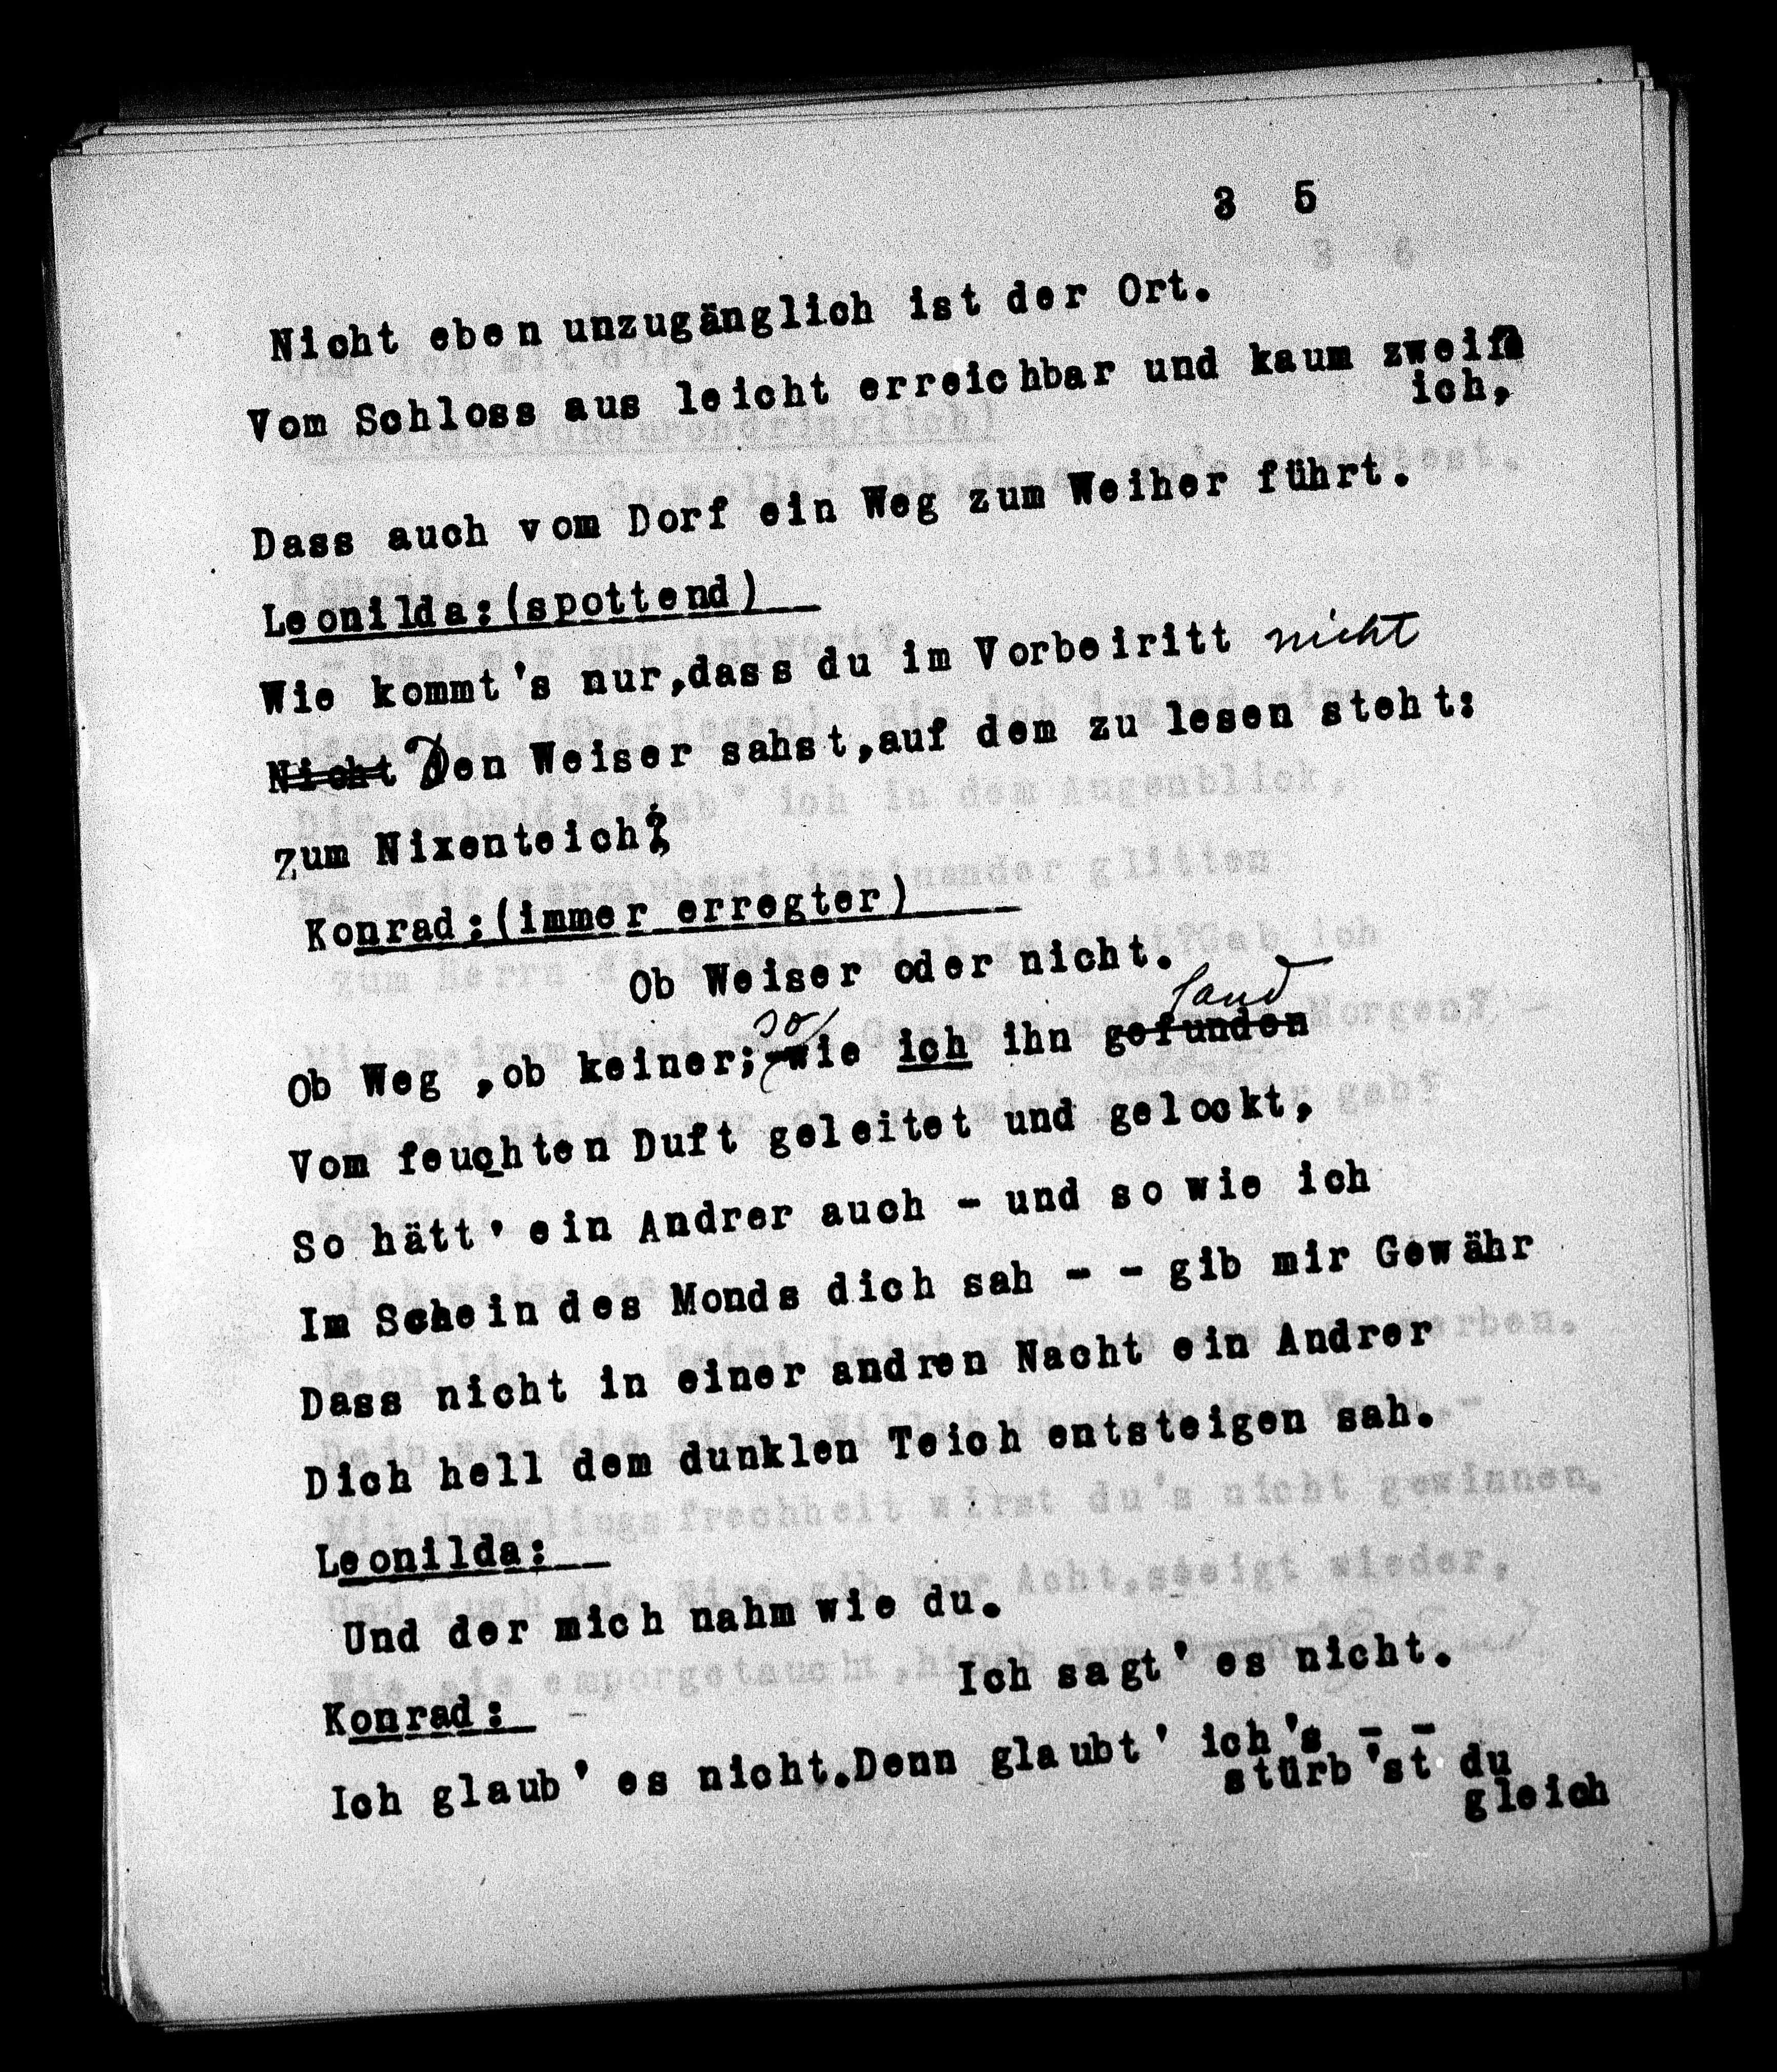 3 5
Nicht eben unzugänglich ist der Ort.
Vom Schloss aus leicht erreichbar und kaum zweifl
ich,
Dass auch vom Dorf ein Weg zum Weiher führt.
Leonilda:(spottend)
Wie kommt's nur,dass du im Vorbeiritt nicht
Nicht Den Weiser sahst,auf dem zu lesen steht:
Zum Nixenteich?
Konrad:(immer erregter)
Ob Weiser oder nicht.
so fand
Ob Weg ,ob keiner;-wie ich ihn gefunden
Vom feuchten Duft geleitet und gelockt,
So hätt' ein Andrer auch - und so wie ich
Im Schein des Monds dich sah - - gib mir Gewähr
Dass nicht in einer andren Nacht ein Andrer
Dich hell dem dunklen Teich entsteigen sah.
Leonilda:
Und der mich nahm wie du.
Ich sagt' es nicht.
Konrad:
Ich glaub' es nicht.Denn glaubt' ich's - -
stürb'st du
gleich